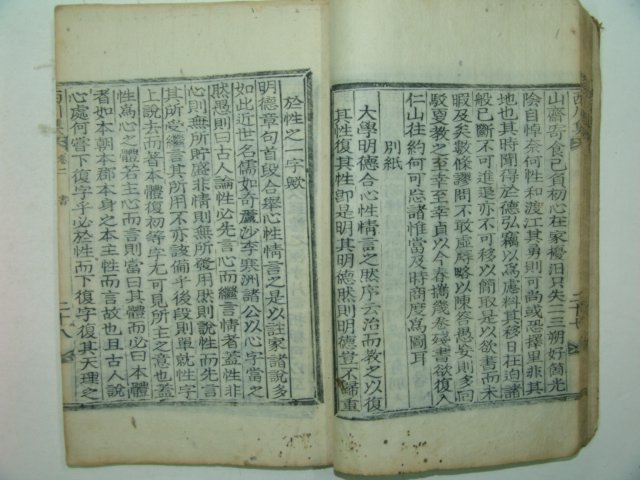 山齋寄食已首初心在家擾汩只失一三朔好箇光
陰自悼奈何性和渡江其勇則可尚或恐擇里非其
地也其時聞得於德弘竊以爲慮料其移日往詢諸
般已斷不可進退亦不可移以簡取是以欲書而未
暇及矣數條謬問不敢虛辱略以陳答愚妄則多回
駁夏教之至幸至幸貞以今春携幾卷殘書欲復入
仁山在約何可忘諸惟當及時商度爲圖耳
別紙
大學明德合心性情言之然序云治而教之以復
其性復其性卽是明其明德然則明德豈不歸重
於性之一字歟
明德章句首段合擧心性情言之是以註家諸說多
如此近世名儒如奇蘆沙李寒洲諸公以心字當之
然愚則曰古人論性必先言心而繼言情者蓋性非
心則無所貯蓄非情則無所發用然則說性而先言
其所受繼言其所用不亦該備乎後段則單就性字
上說去而著本體復初等字尤可見所主之意也蓋
性爲心之體若主心而言則當曰其體而必曰本體
者如本朝本郡本身之本主性而言故也且古人說
心處何嘗下復字乎必於性而下復字復其天理之
卷二
書
二十七
二十八